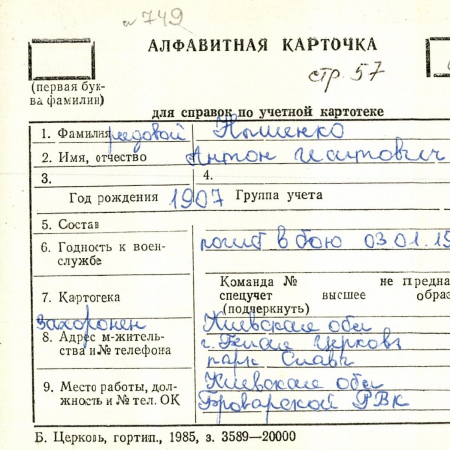 н 749
АЛФАВИТНАЯ КАРТОЧКА
стр. 57
(первая бук-
ва фамилии)
для справок по учетной картотеке
1. Фамилия рядовой
2. Имя, отчество Антон
3.
4.
Год рождения 1907 Группа учета
5. Состав
6. Годность к воен-
службе
погиб в бою 03 01.19
7. Картотека
Команда № не предна
спецучет высшее образ
(подчеркнуть)
Захоронен
8. Адрес м-житель-
ства и № телефона
Киевская обл
г. Белая Церковь
парк Славы
9. Место работы, дол-
жность и № тел. ОК
Киевская обл
Броварской РВК
Б. Церковь, гортип., 1985, з. 3589—20000